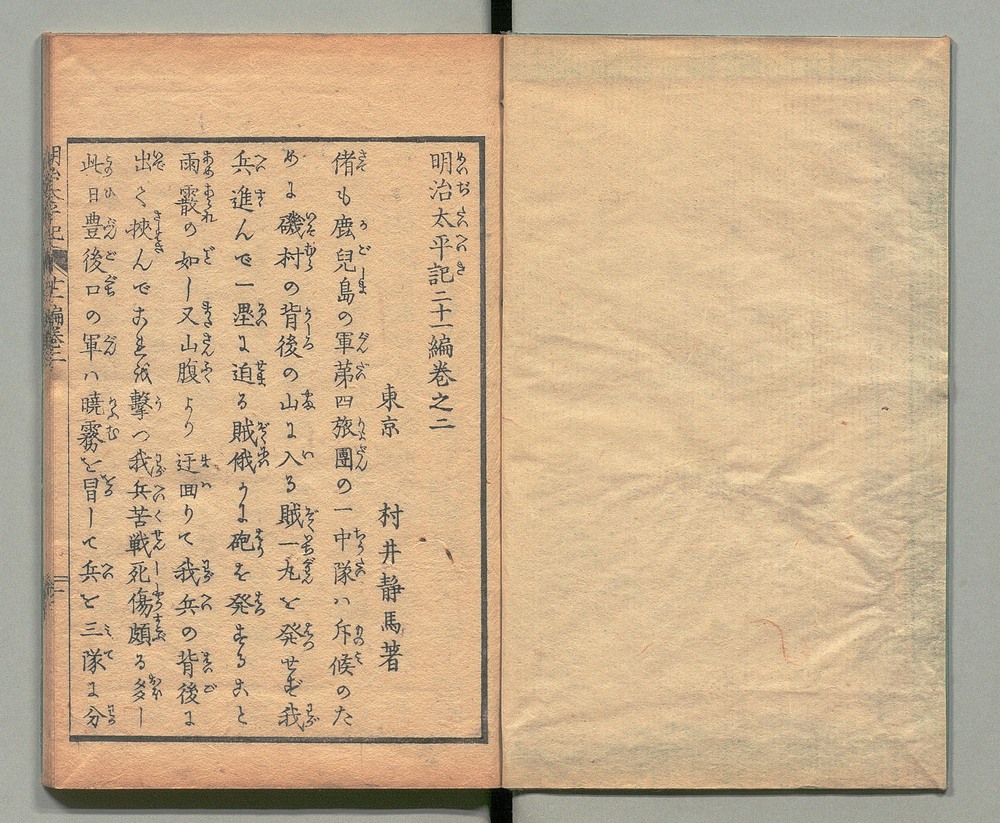 明治太平記二十一編巻之二
東京 村井静馬著
偖も鹿児島の軍第四旅團の一中隊ハ斥候のた
めに磯村の背後の山に入る賊一丸を発せず我
兵進んで一塁に迫る賊俄かに砲を発すること
雨霰の如し又山腹より迂回りて我兵の背後に
出て挾んでこれを撃つ我兵苦戦死傷頗る多し
此日豊後口の軍ハ暁霧を冒して兵を三隊に分